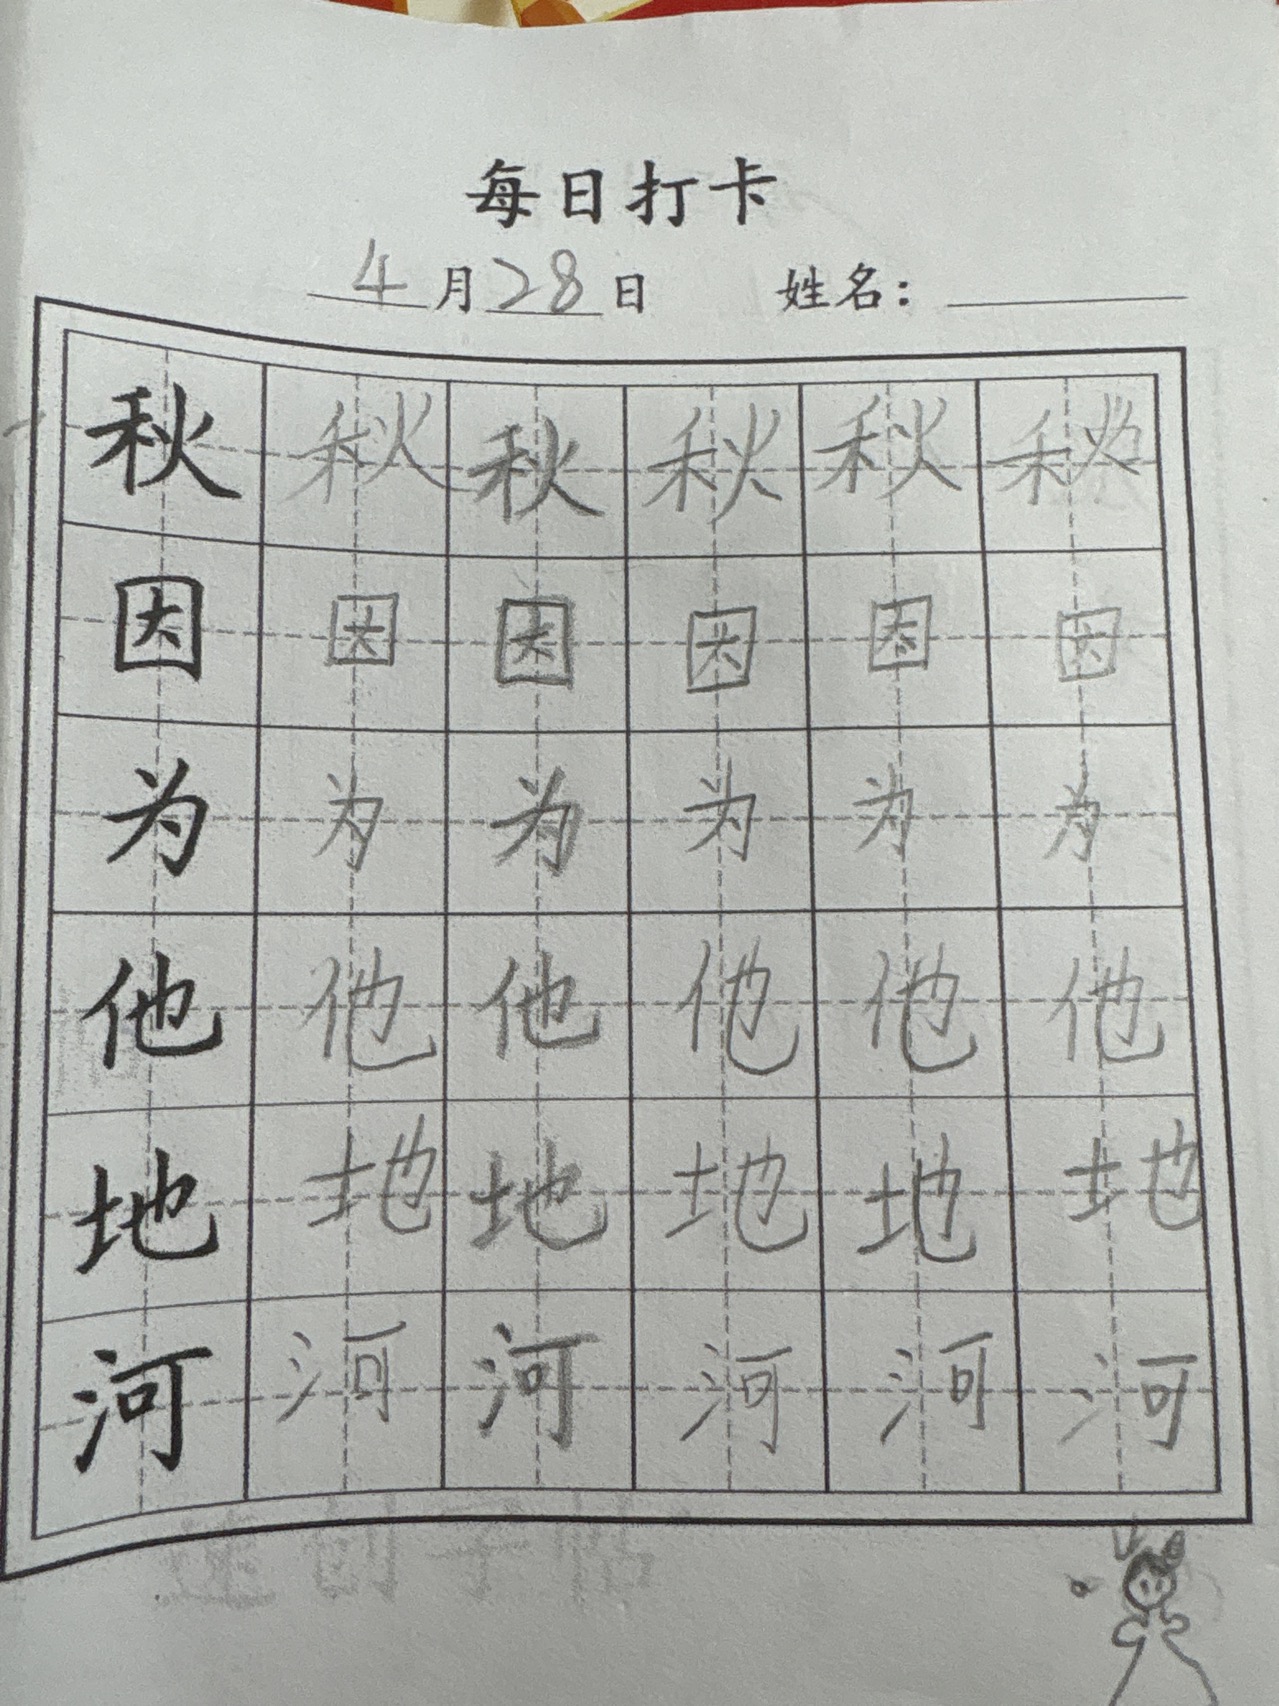 每日打卡
4月28日 姓名：
秋 秋 秋 秋 秋 秋
因 因 因 因 因 因
为 为 为 为 为 为
他 他 他 他 他 他
地 地 地 地 地 地
河 河 河 河 河 河